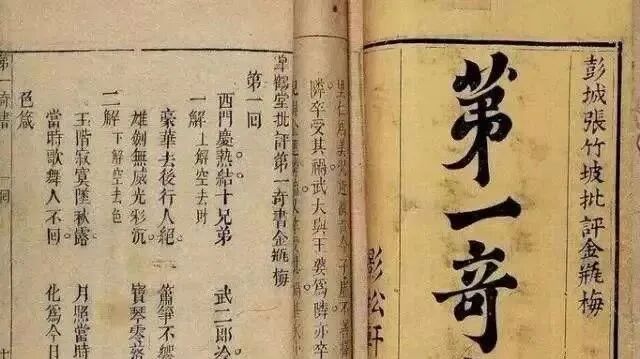 彭城張竹坡批評金瓶梅
第一奇
影松軒
隣卒受其禍武大與王婆為隣亦卒
皋鶴堂批評第一奇書金瓶梅
第一回
西門慶熱結十兄弟 武二郎冷
一解 上解空去財
豪華去後行人絕 簫箏不響
雄劍無威光彩沉 寶琴零落
二解 下解空去色
玉階寂寞墜秋露 月照當時
當時歌舞人不回 化為今日
色箴
第一奇書
回